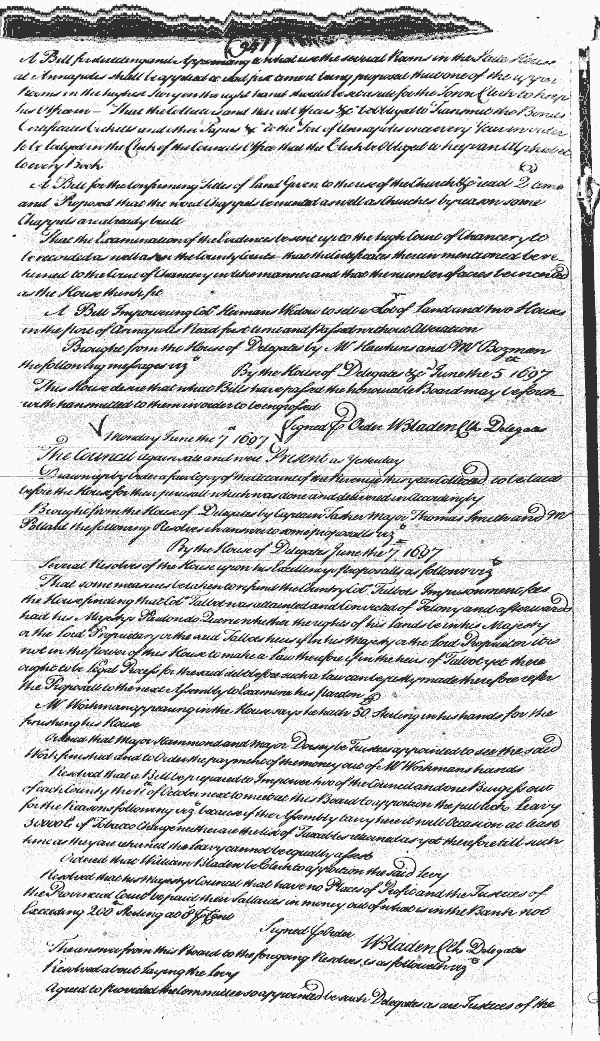 (941)
A Bill for dividing and Appointing to what use the several Rooms in the State House
at Annapolis shall be applied to read first time it being proposed that one of the upper
Rooms in the highest Story on the right hand be reserved for the Town Clerk to keep
his Office in — That the Collectors and Naval Officers &c be obliged to Transmit the Bonds
Certificates Cocketts and other Papers &c to the Port of Annapolis once every Year in order
to be lodged in the Clerk of the Councils Office that the Clerk be Obliged to keep an Alphabet
to every Book
A Bill for the confirming Titles of Land Given to the use of the Church &c read 2d time
and Proposed that the word Chappels be inserted as well as Churches by reason some
Chappels are already built
That the Examination of the Evidences be sent up to the high Court of Chancery to
be recorded as well as in the County Courts that the Certificates therein mentioned be re-
turned to the Court of Chancery in the manner and that the number of acres be inserted
as the House think fit
A Bill Impowering Col. Hermans Widow to sell a Lot of Land and two Houses
in the Port of Annapolis Read first time and passed without Alteration
Brought from the House of Delegates by Mr Hawkins and Mr Bozman
the following messages vizt By the House of Delegates &c June the 5th 1697
This House desire that what Bills have passed the honourable Board may be forth
with transmitted to them in order to be engrossed
Signed p Order W Bladen Clk Delegates
Monday June the 7th 1697
The Council again sate and were Present as Yesterday
Drawn up by order a fair Copy of the Account of the Revenue this year Collected to be laid
before the House for their perusall which was done and delivered in accordingly
Brought from the House of Delegates by Captain Tasker Major Thomas Smith and Mr
Pollard the following Resolves in answer to some proposalls vizt
By the House of Delegates June the 7th 1697
Several Resolves of the House upon his Excellencys Proposalls as followeth vizt
That some measures be taken to refund the Country Col. Talbots Imprisonment fees
the House finding that Col. Talbot was attainted and Convicted of Felony and afterwards
had his Majestys Pardon do Querie whether the rights of his Lands be in his Majesty
or the Lord Proprietary or the said Talbots heirs if in his Majesty or the Lord Proprietor it is
not in the power of this House to make a Law therefore if in the heirs of Talbot yet there
ought to be legal Process for the said debt before such a law can be justly made therefore refer
the Proposall to the next Assembly to Examine his pardon
Mr Workman appearing in the House says he hath 50£ Sterling in his hands for the
finishing his House
Ordered that Major Hammond and Major Dorsey be Trustees appointed to see the said
Work finished and to Order the payment of the money out of Mr Workmans hands
Resolved that a Bill be prepared to Impower two of the Council and one Burgess out
of each County the 1st of October next to meet at this Board to apportion the publick Leavy
for the Reasons following vizt because if the Assembly tarry here it will Occasion at least
30000£ of Tobacco Charge neither are the list of Taxables returned as yet therefore till such
time as they are returned the leavy cannot be equally assest
Ordered that William Bladen be Clerk to apportion the said levy
Resolved that his Majestys Council that have no Places of Profit and the Justices of
the Provincial Court be paid their Sallaries in money out of what is in the Bank not
Exceeding 200£ Sterling at 8 p Cent
Signed p Order
W Bladen Clk Delegates
The answer from this Board to the foregoing Resolves is as followeth vizt
Resolved about laying the levy
Agreed to provided the Committee so appointed be such Delegates as are Justices of the